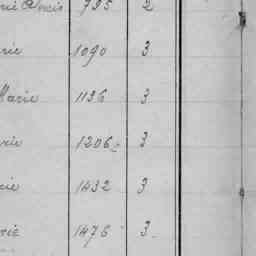 795 2
rie 1090 3
Marie 1136 3
rie 1206 3
rie 1432 3
rie 1476 3